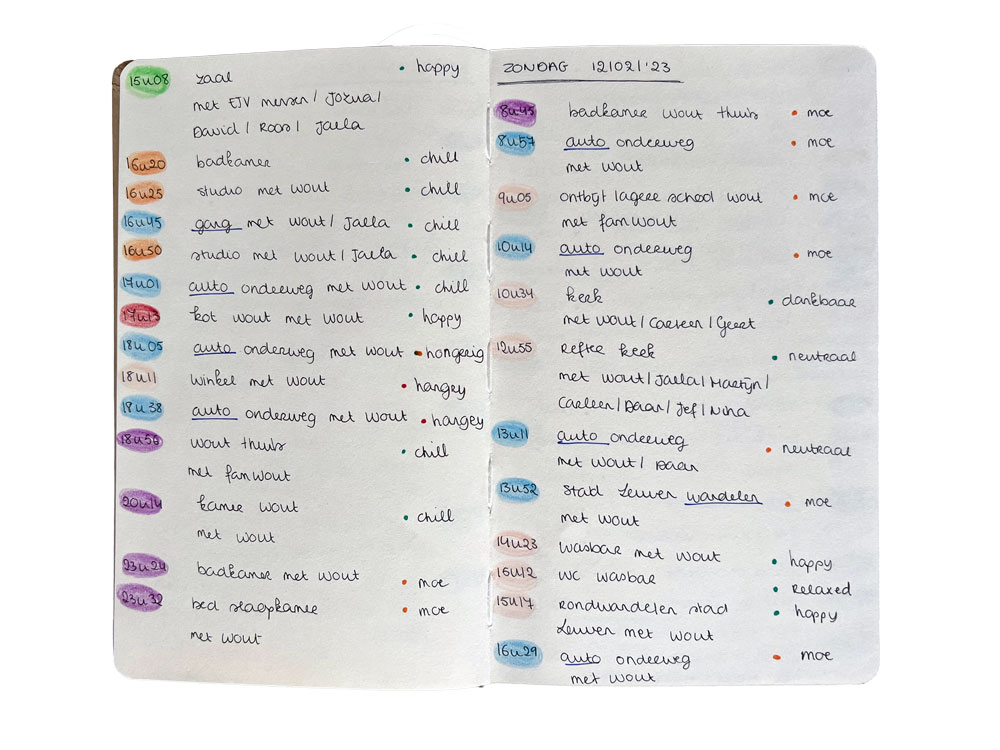 15u08 zaal • happy
met EJV mensen / Jozua /
David / Roos / Jaëla
16u20 badkamer • chill
16u25 studio met wout • chill
16u45 gang met wout / Jaëla • chill
16u50 studio met wout / Jaëla • chill
17u01 auto onderweg met wout • chill
17u13 kot wout met wout • happy
18u05 auto onderweg met wout • hongerig
18u11 winkel met wout • hangry
18u38 auto onderweg met wout • hangry
18u56 wout thuis • chill
met fam wout
20u14 kamer wout • chill
met wout
23u24 badkamer met wout • moe
23u32 bed slaapkamer • moe
met wout
ZONDAG 12/02/'23
8u45 badkamer wout thuis • moe
8u57 auto onderweg • moe
met wout
9u05 ontbijt lagere school wout • moe
met fam wout
10u14 auto onderweg • moe
met wout
10u34 kerk • dankbaar
met wout / Carleen / Geert
12u55 refter kerk • neutraal
met wout / Jaëla / Martijn /
Carleen / Daan / Jef / Nina
13u11 auto onderweg • neutraal
met wout / Daan
13u52 stad Leuven wandelen • moe
met wout
14u23 wasbar met wout • happy
15u12 wc wasbar • relaxed
15u17 rondwandelen stad • happy
Leuven met wout
16u29 auto onderweg • moe
met wout